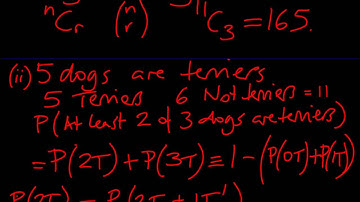 nCr (n r) 11C3 = 165.
(ii) 5 dogs are terriers
5 Terriers 6 Not terriers = 11
P(At least 2 of 3 dogs are terriers)
= P(2T) + P(3T) ≡ 1 - (P(0T) + P(1T)
P(2T) = P(2T + 1T')